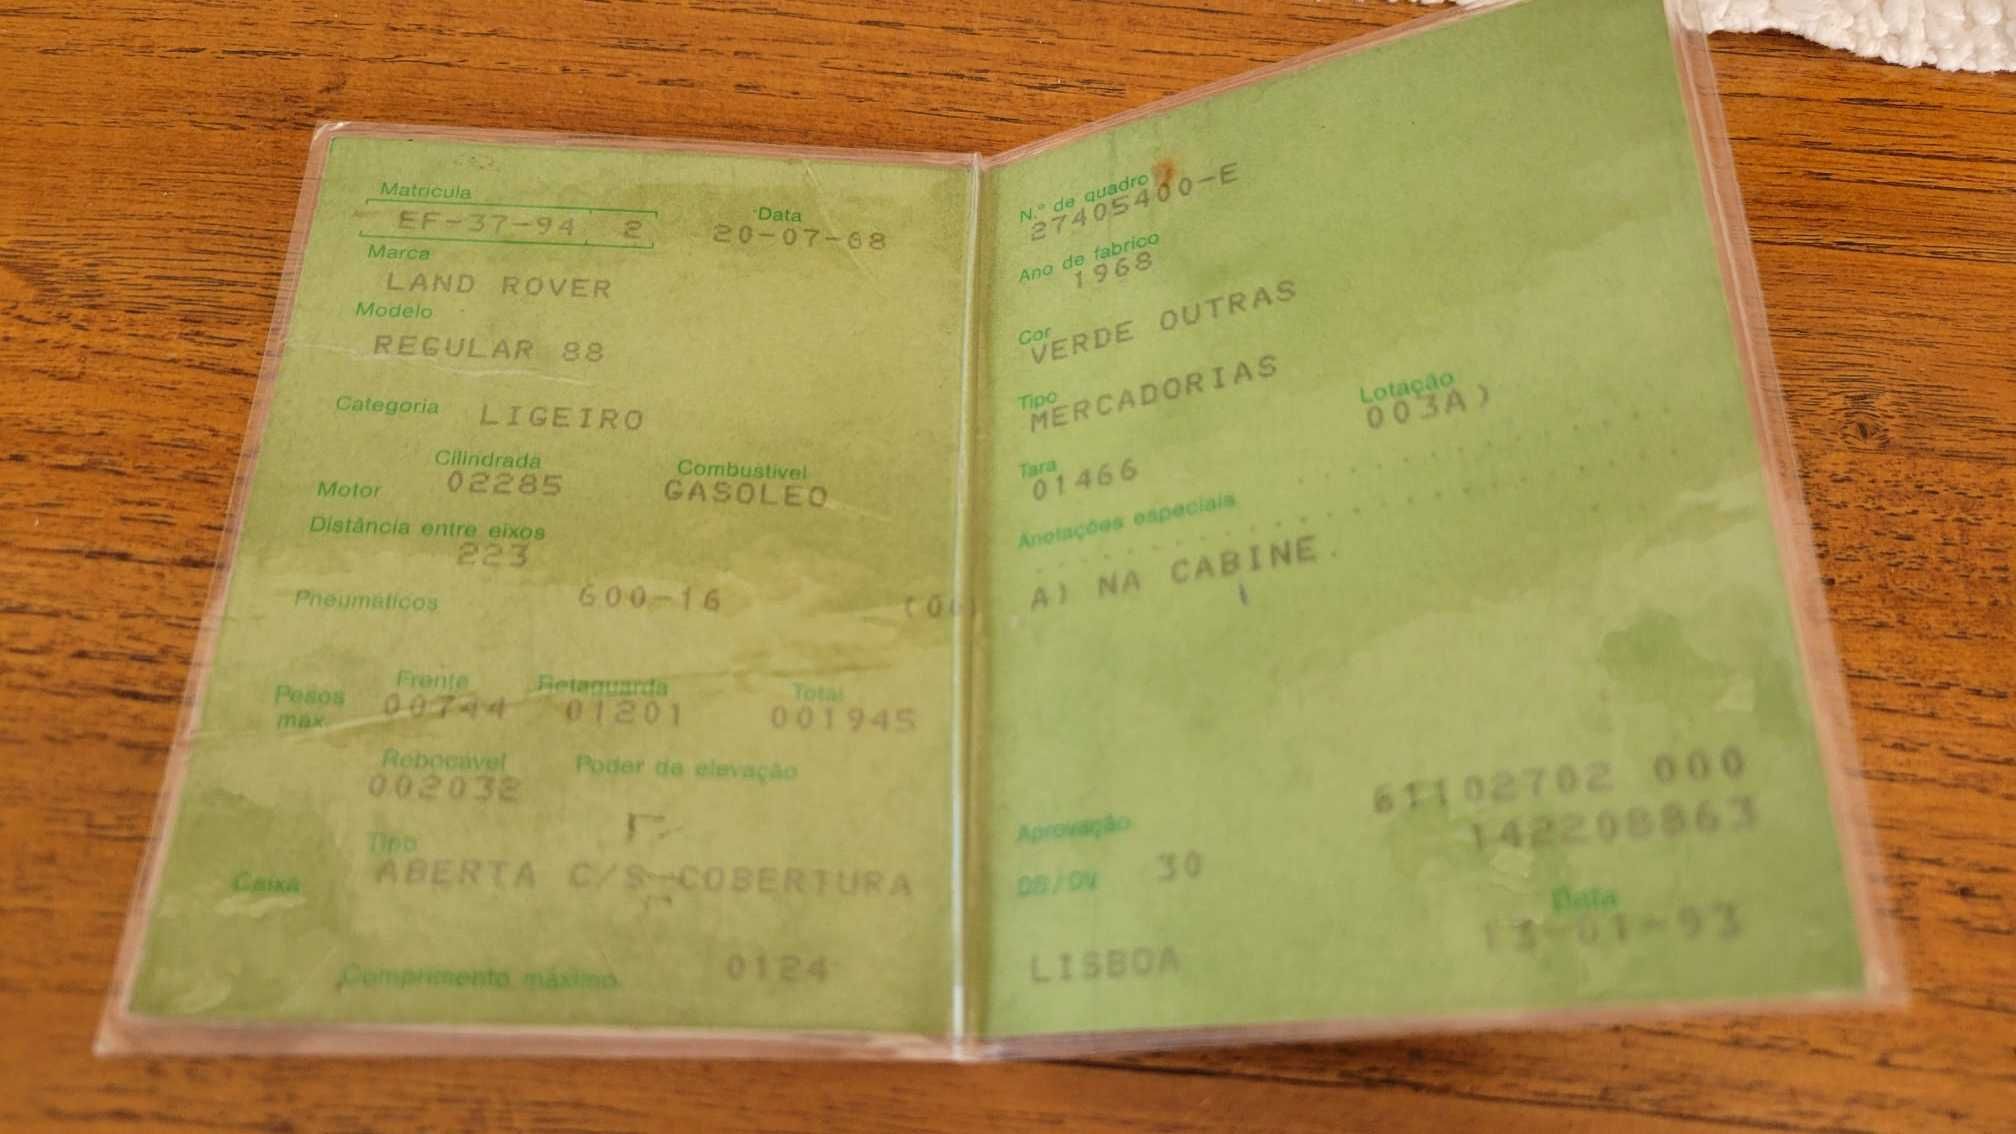 Matrícula
EF-37-94 2
Data
20-07-68
Marca
LAND ROVER
Modelo
REGULAR 88
Categoria LIGEIRO
Cilindrada
Motor 02285
Combustível
GASOLEO
Distância entre eixos
223
Pneumáticos 600-16
Pesos máx.
Frente
00744
Retaguarda
01201
Total
001945
Rebocável
002032
Poder de elevação
Caixa
Tipo
ABERTA C/S-COBERTURA
Comprimento máximo 0124
N.º de quadro
27405400-E
Ano de fabrico
1968
Cor
VERDE OUTRAS
Tipo
MERCADORIAS
Lotação
003A)
Tara
01466
Anotações especiais
A) NA CABINE
61102702 000
Aprovação 142208863
DS/DV 30
Data
13-01-93
LISBOA